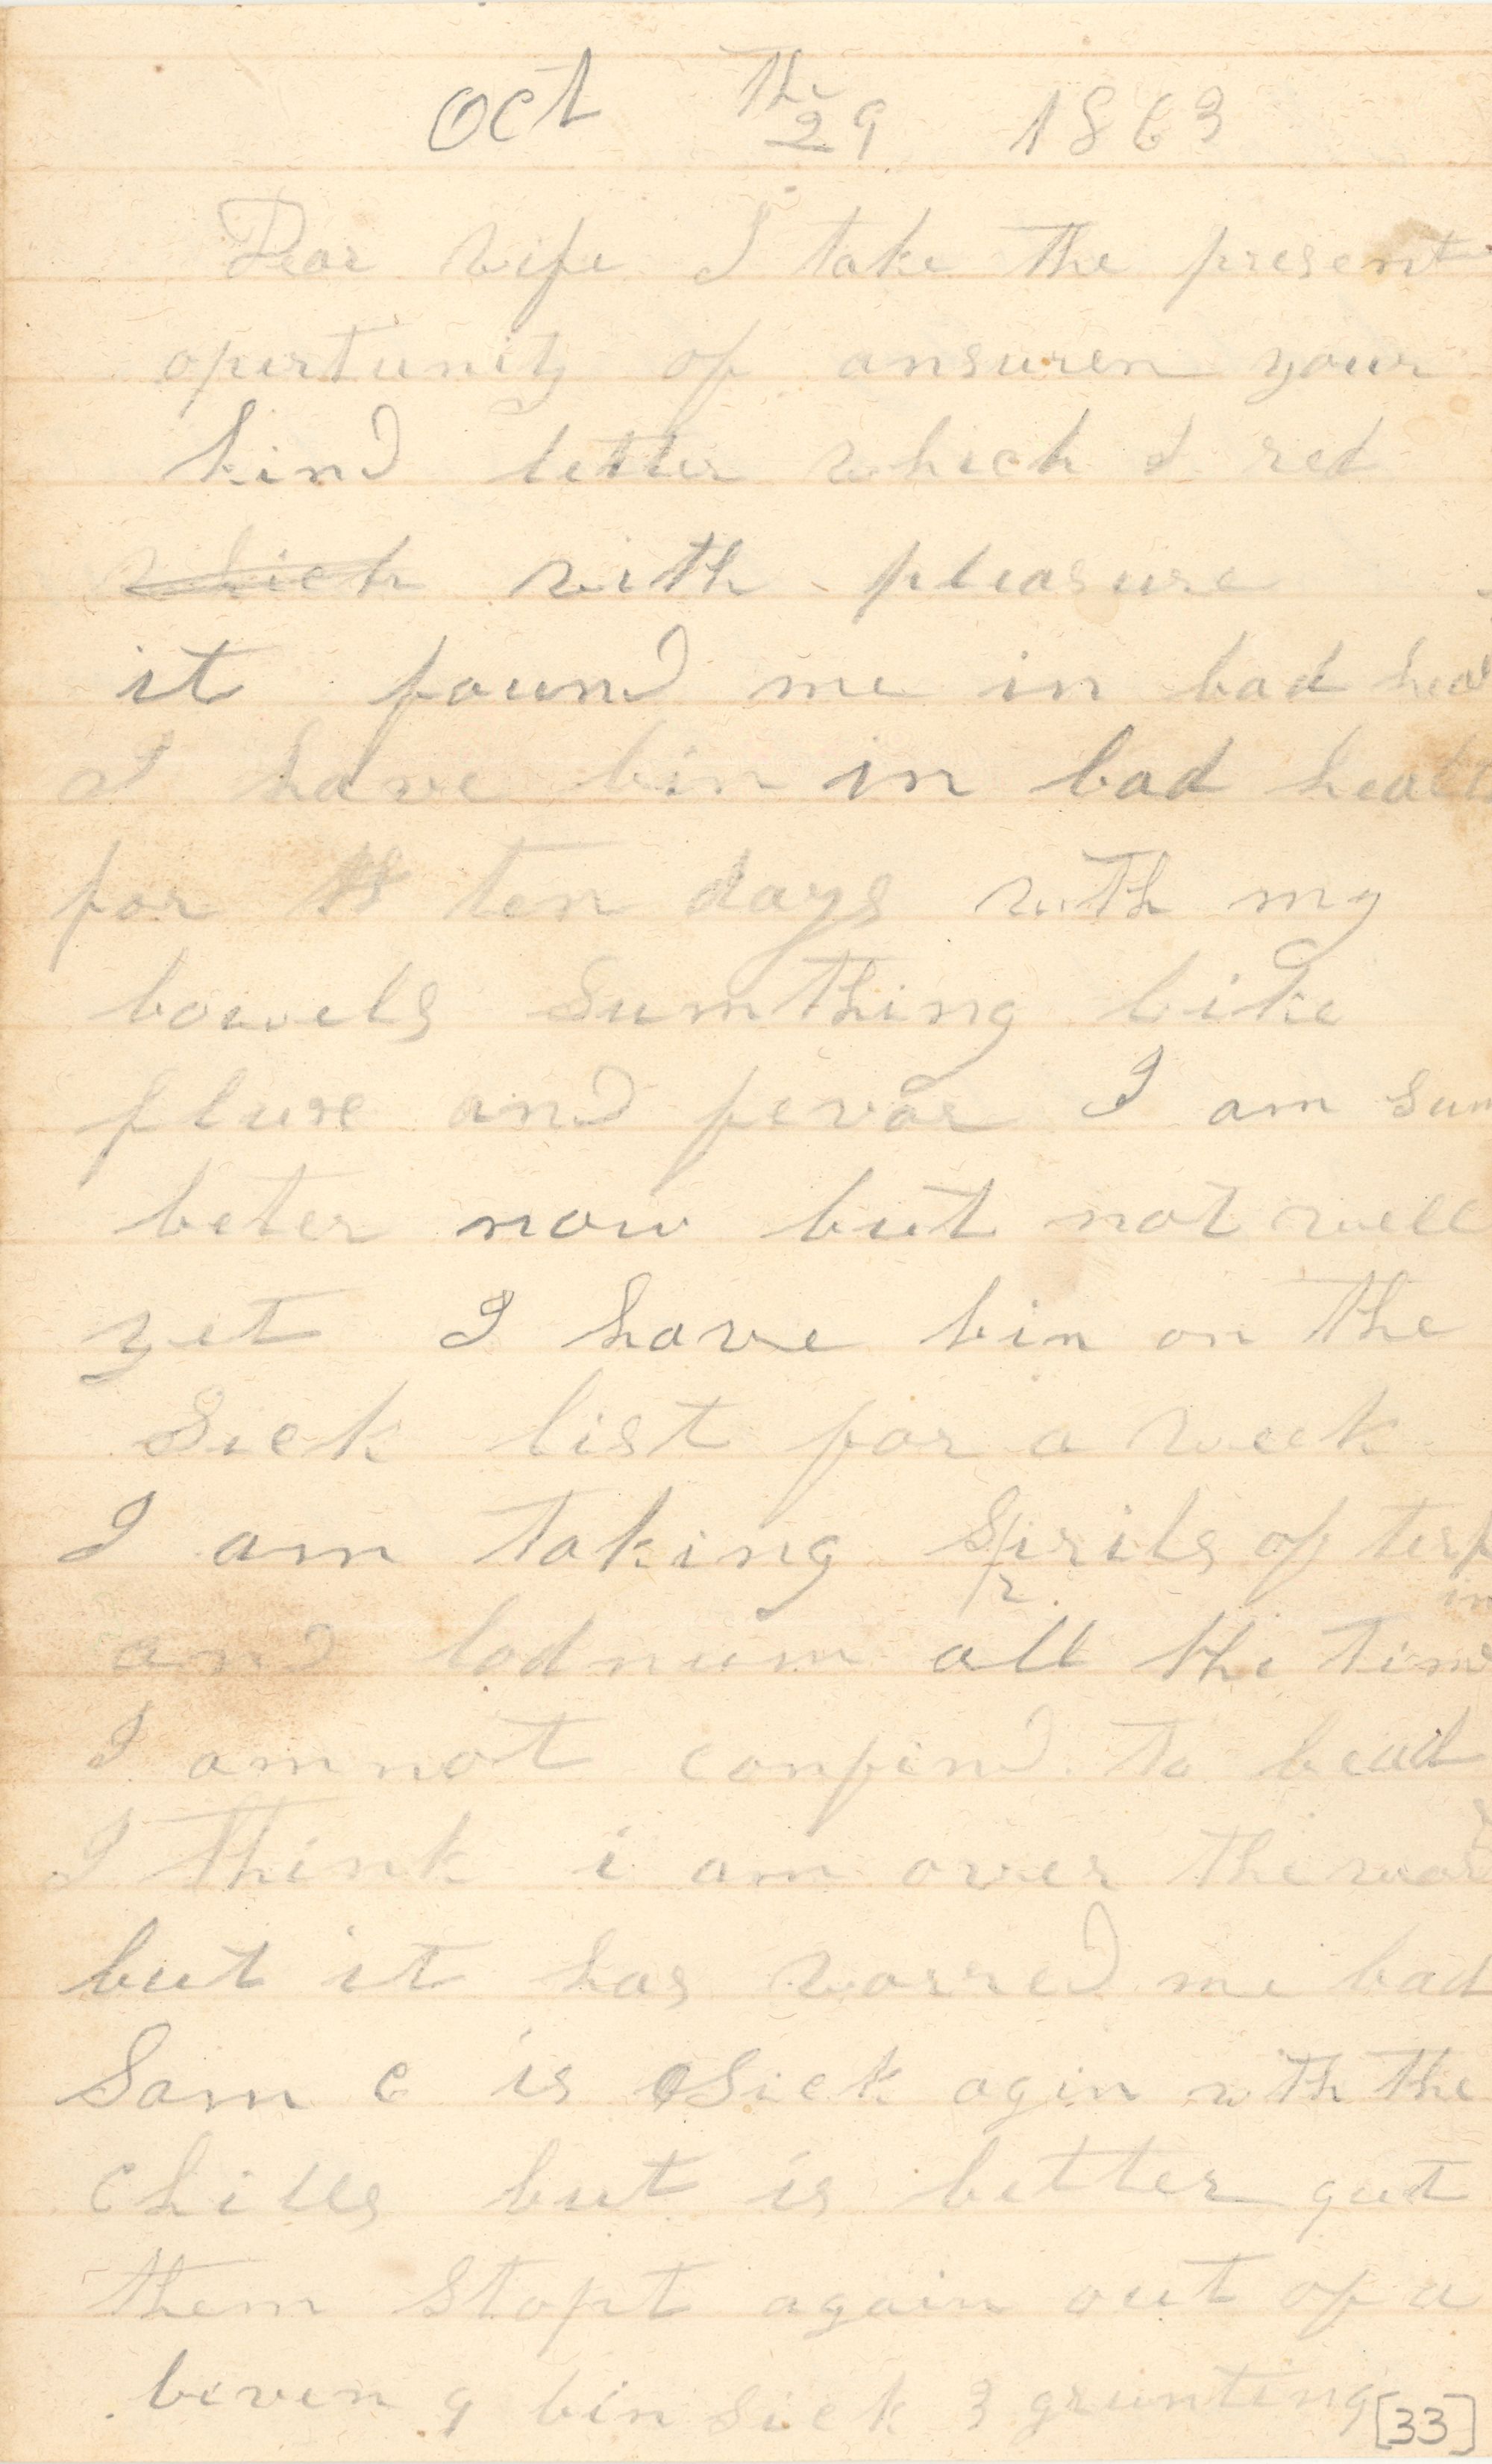 Oct 29th 1863
Dear wife I take the present
opertunity of ansuren your
kind letter which I red
which with pleasure
it found me in bad heal
I have bin in bad healt
for ten days with my
bowels sumthing like
flure and fevar I am sum
beter now but not well
yet I have bin on the
Sick list for a week
I am taking Spirits of terp
in
and lodnum all the time
I am not confind to bead
I think i am over the
but it has worred me bad
Sam C is Sick agin with the
chills but is better gut
them Stopt again out of a
leven 9 bin sick 3 grunting
[33]